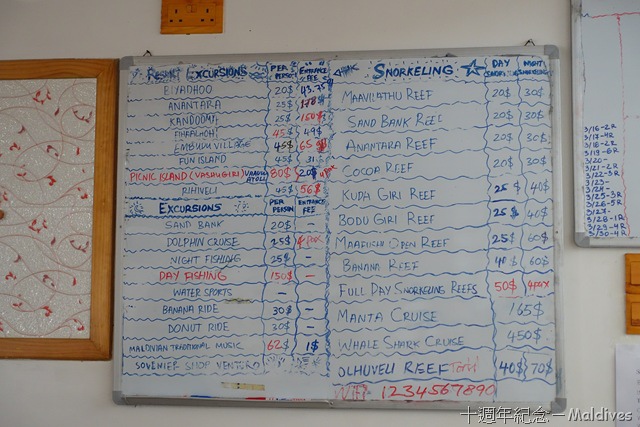 Resort Excursions PER PERSON ENTRANCE FEE
BIYADHOO 20$ 43.75
ANANTARA 25$
KANDOOMA 25$ 150$
FIHALHOHI 45$ 49$
EMBUDU VILLAGE 45$ 65$
FUN ISLAND 45$ 31
PICNIC ISLAND (VASHUGIRI) 80$ 20$
RIHIVELI 45$ 56$
EXCURSIONS PER PERSON ENTRANCE FEE
SAND BANK 20$
DOLPHIN CRUISE 25$ 4 pax
NIGHT FISHING 25$ —
DAY FISHING 150$ —
WATER SPORTS — —
BANANA RIDE 30$ —
DONUT RIDE 30$ —
MALDIVIAN TRADITIONAL MUSIC 62$ 1$
SOVENIER SHOP VENTURO
SNORKELING DAY SNORKELING NIGHT SNORKELING
MAAVILATHU REEF 20$ 30$
SAND BANK REEF 20$ 30$
ANANTARA REEF 20$ 30$
COCOA REEF 20$ 30$
KUDA GIRI REEF 25$ 40$
BODU GIRI REEF 25$ 40$
OPEN REEF 25$ 60$
BANANA REEF 60$
FULL DAY SNORKELING REEFS 50$ 4pax
MANTA CRUISE 165$
WHALE SHARK CRUISE 450$
OLHUVELI REEF 40$ 70$
WIFI 1234567890
3/16-2R
3/17-4R
3/18-2R
3/19-6R
3/20-
3/21-2R
3/22-3R
3/23-
3/24-
3/25-3R
3/26-5R
3/27-
3/28-1R
3/29-4R
3/30-4R
十週年紀念 – Maldives